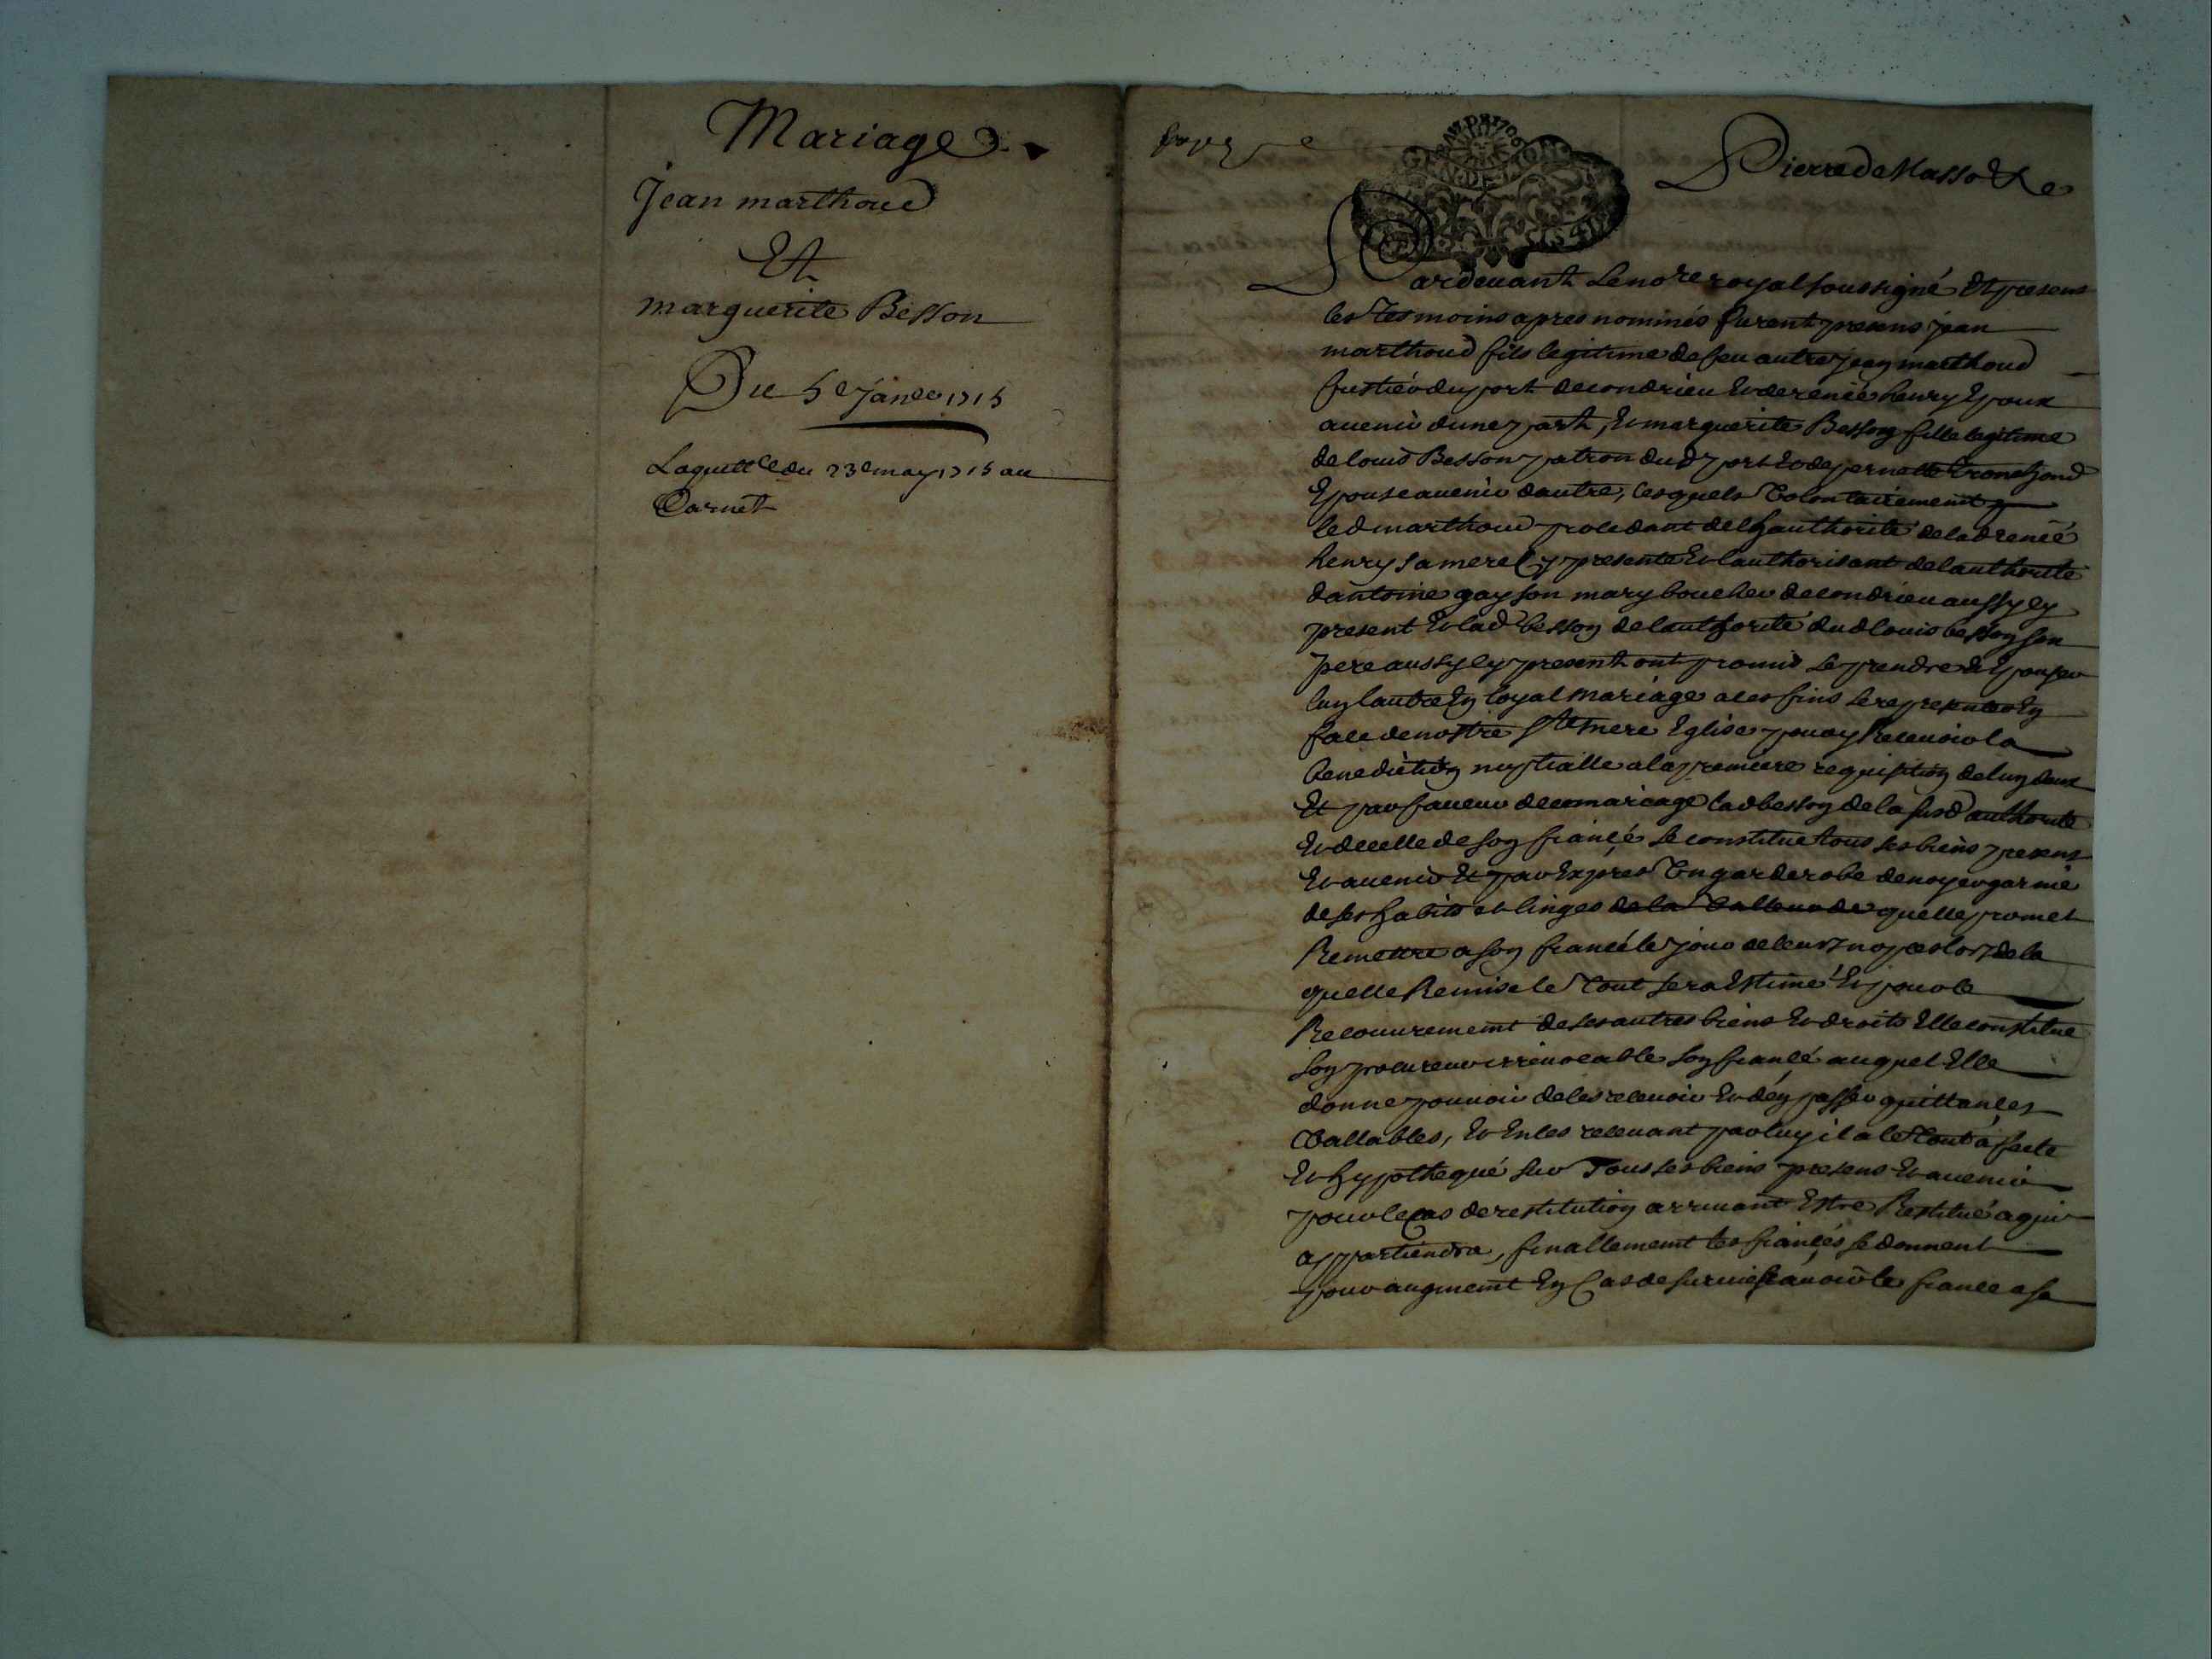 Mariage
Jean marthoud
Et
marguerite Besson
Du 5e Janer 1715
Laquittce du 23e may 1715 au
Carnet
Pierre de Masso
GEN DE LYON
Pardeuant Le nore royal soussigné Et presens
les Tesmoins apres nommés furent presens jean
marthoud fils legitime de feu autre jean marthoud
fustier du port de condrieu Et de reniée henry Epoux
auenir dune part, Et marguerite Besson fille legitime
de louis Besson patron dud port Et de pernette
Epouse auenir dautre, lesquels Volontairement
led marthoud procedant de lhauthorité de lad reniée
henry sa mere Cy presente Et lauthorisant de lauthorité
dantoine gay son mary boucher de condrieu aussy cy
present Et lad besson de lauthorité dud louis besson son
pere aussy cy present ont promis se prendre Et Epouser
lun lautre En loyal Mariage a ces fins se representer En
face de nostre Ste mere Eglise pour y Receuoir la
benediction nuptialle a la premiere requisition de lun deux
Et par faueur de ce mariage lad besson de la susd authorité
Et de celle de son fiancé se constitue tous ses biens presens
Et auenir Et par Expres Un garderobe de noyer garnie
de ses habits et linges de la Valleur de quelle promet
Remettre a son fiancé le jour de leurs nopces lors de la
quelle Remise le Tout sera Estimé Et pour le
Recouurement de ses autres biens Et droits Elle constitue
son procureur irreuocable son fiancé auquel Elle
donne pouuoir de les receuoir Et den passer quittances
Vallables, Et En les receuant par luy il a le Tout affecté
Et hypothequé sur Tous ses biens presens Et auenir
pour le cas de restitution arriuant Estre Restitué a qui
appartiendra, finallement les fiancés se donnent
pour augment En Cas de suruie scauoir le fiancé a sa